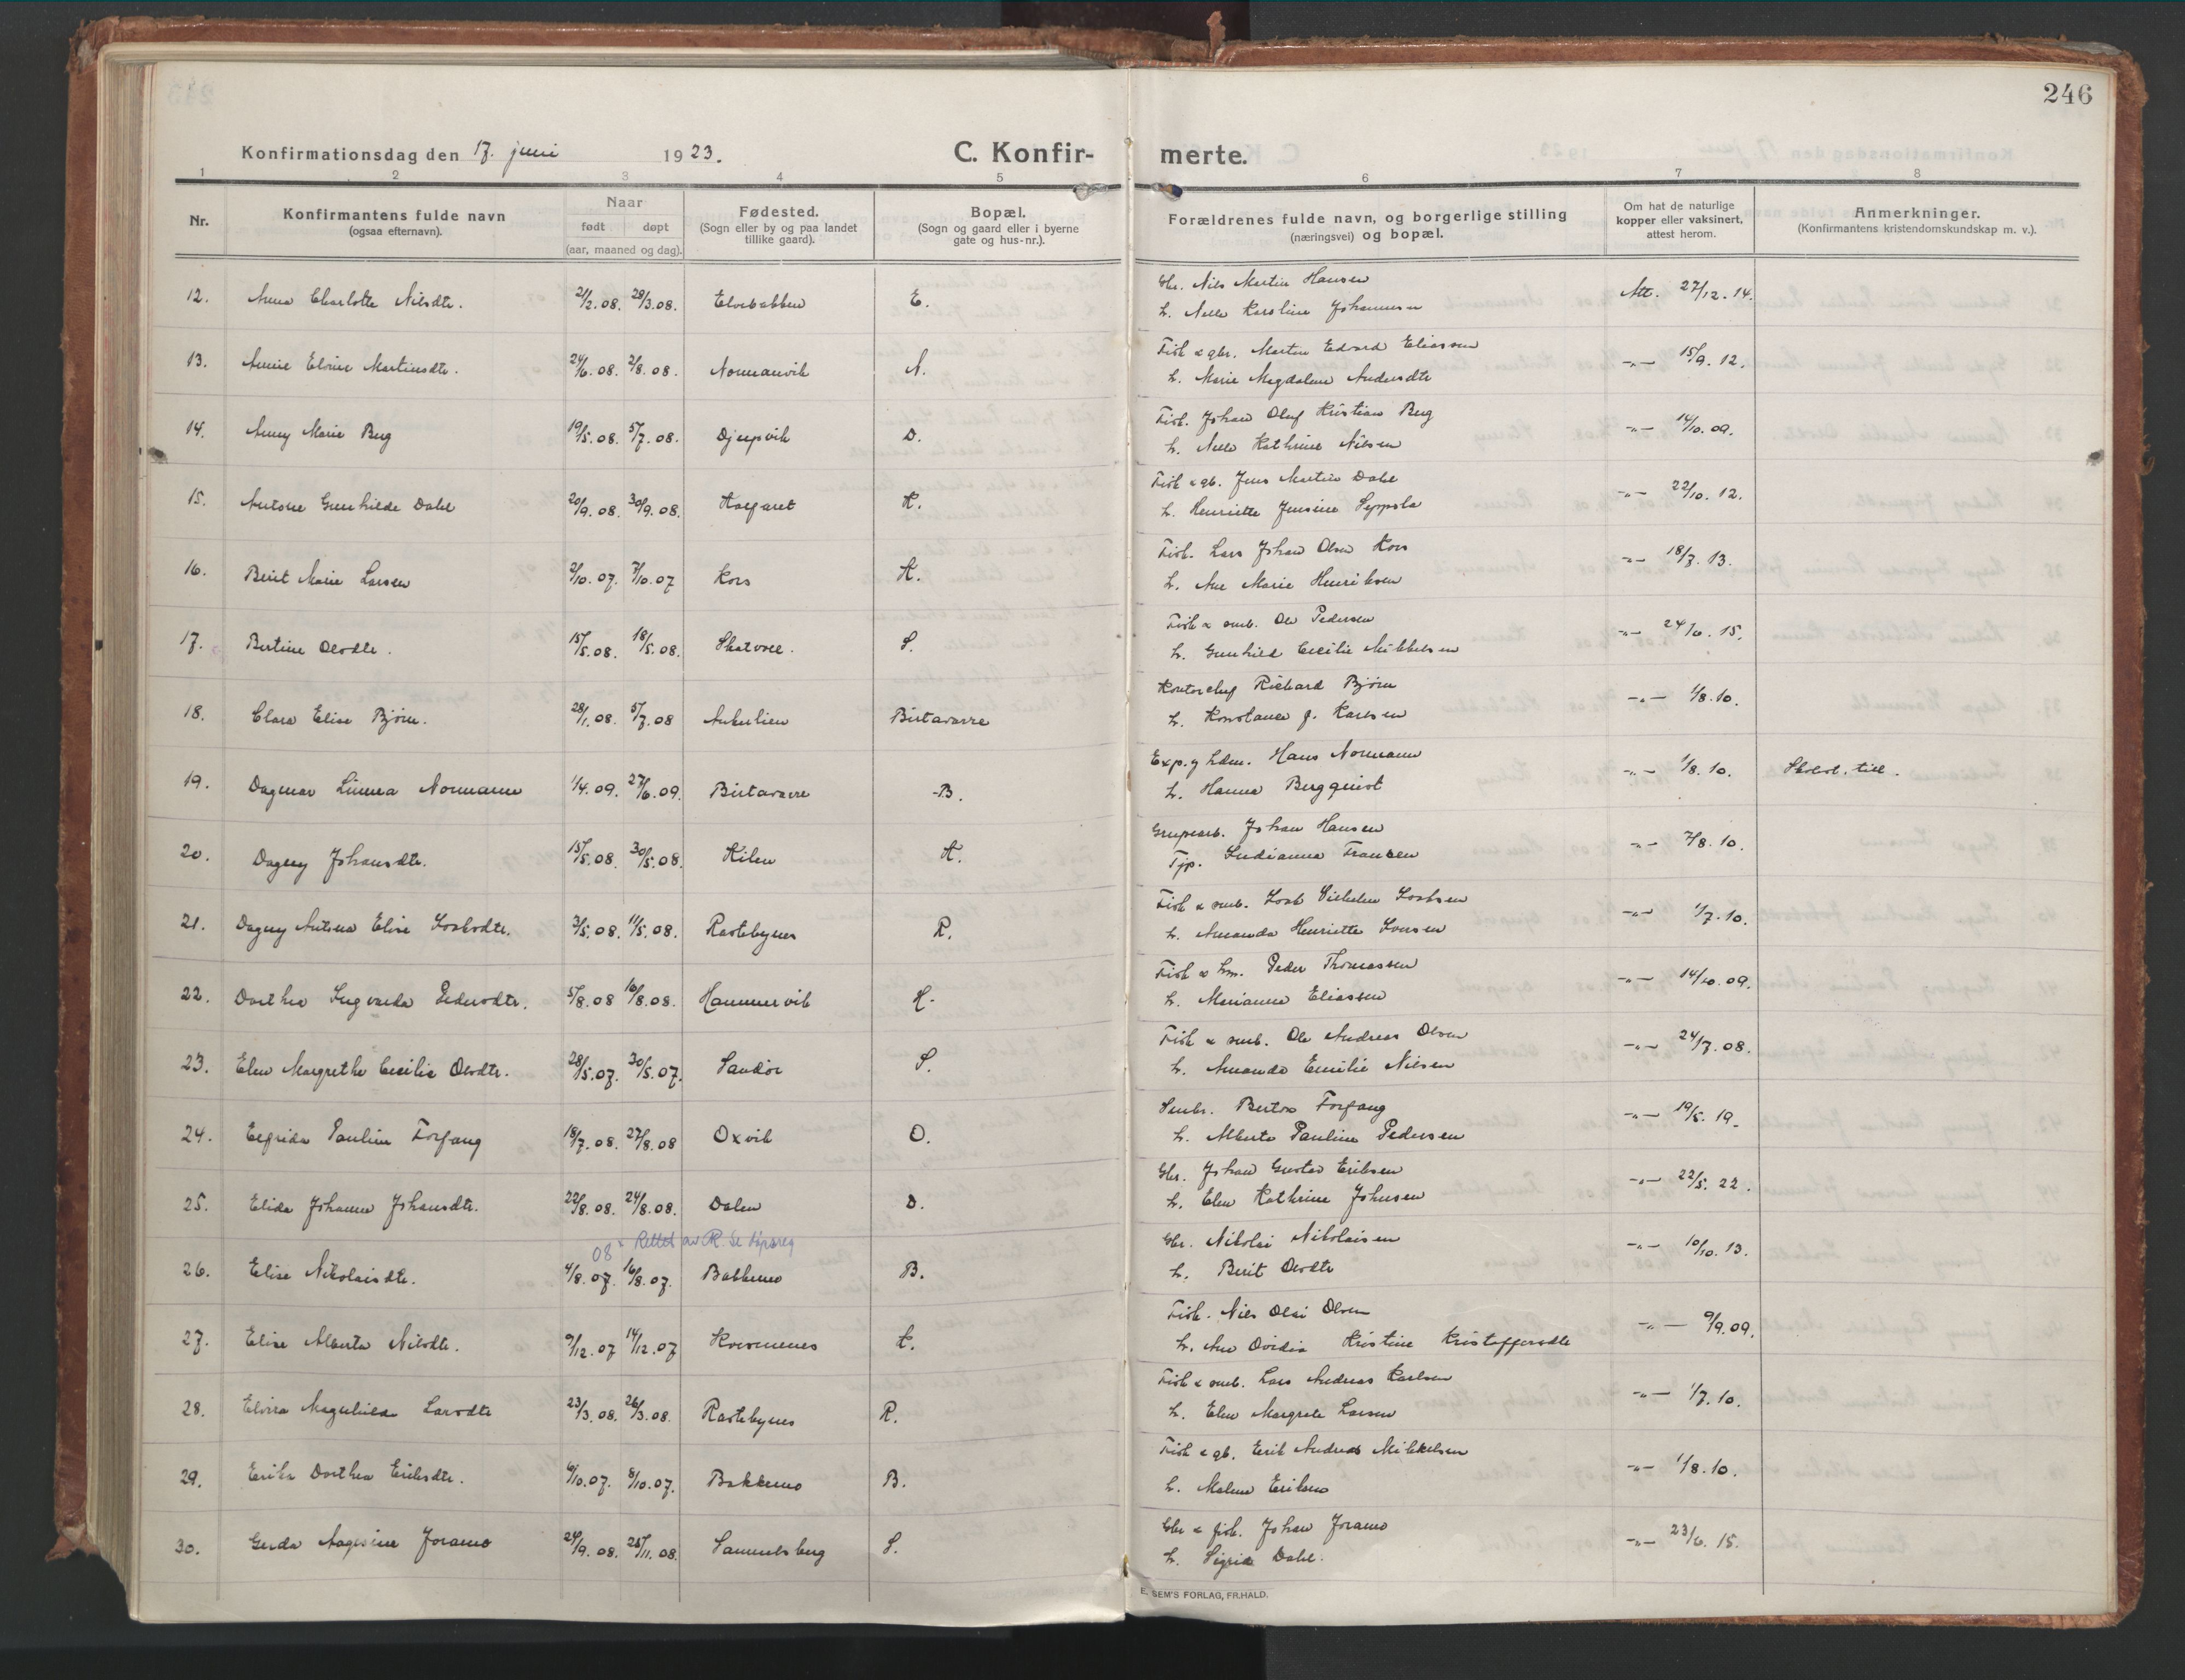 246
Konfirmationsdag den 17. juni 1923. C. Konfir- merte.
1 2 3 4 5 6 7 8
Nr. Konfirmantens fulde navn (ogsaa efternavn). Naar født døpt (aar, maaned og dag). Fødested. (Sogn eller by og paa landet tillike gaard). Bopæl. (Sogn og gaard eller i byerne gate og hus-nr.). Forældrenes fulde navn, og borgerlige stilling (næringsvei) og bopæl. Om hat de naturlige kopper eller vaksinert, attest herom. Anmerkninger. (Konfirmantens kristendomskundskap m. v.).
12. Anna Charlotte Nilsdtr. 21/2.08. 28/3.08. Elvebakken E. Gbr. Nils Martin Hansen Att. 27/12.14.
h. Karoline Johannesen
13. Elvine Martinsdtr. 24/6.08. 2/8.08. Normanvik N. Fisk & gbr. Martin Edvard Eliassen -"- 15/9.12.
h. Marie Magdalene Andersdtr
14. Anny Marie Berg 19/5.08. 5/7.08. Djupvik D. Fisk. Johan Oluf Kristian Berg -"- 14/10.09.
h. Kathrine Nilsen
15. Gunhilde Dahl 20/9.08. 30/9.08. K. Fisk & gb. Jens Martin Dahl -"- 22/10.12.
h. Henriette Jensine Seppola
16. Berit Marie Larsen 2/10.07. 7/10.07 Kors K. Fisk. Lars Johan Olsen Kors -"- 18/7.13.
h. Ane Marie Henriksen
17. Bertine Olsdtr. 15/5.08. 18/5.08. Skatvold. S. Fisk & smb. Ole Pedersen -"- 24/6.15.
h. Gunhild Cecilie Mikkelsen
18. Clara Elise Bjørn. 28/1.08. 5/7.08 Ankerlien Birtavarre Kontorchef Richard Bjørn -"- 1/8.10.
h. Konstance J. Karlsen
19. Dagmar Linnea Normann 1/4.09. 27/6.09. Birtavarre B. Exp. og hdm. Hans Normann -"- 1/8.10.
h. Hanna Bergquist
20. Dagny Johansdtr. 15/5.08. 30/5.08. Kilen K. Grupearb. Johan Hansen -"- 7/8.10.
Tjp. Indianna Fransen
21. Dagny Elise 3/5.08. 11/5.08. Rastebynes R. Fisk & smb. Vilhelm -"- 1/7.10.
h. Amanda Henriette
22. Dorthea Ingvarda Pedersdtr. 5/8.08 16/8.08. Hammervik H. Fisk & hm. Peder Thomassen -"- 14/10.09.
h. Marianne Eliassen
23. Elen Margrethe Cecilie Olsdtr. 28/5.07. 30/5.07. Sandør S. Fisk & smb. Ole Andreas Olsen -"- 24/7.08.
h. Amanda Emilie Nilsen
24. Elfrida Pauline Forfang 18/7.08. 27/8.08 Oxvik O. Smbr. Bertox Forfang -"- 19/5.19.
h. Alberte Pauline Pedersen
25. Elida Johanne Johansdtr. 22/8.08. 24/8.08. Dalen D. Gbr. Johan Gustav Eriksen -"- 22/5.22.
h. Elen Kathrine Johnsen
08 x Rettet av R. Se dåpsreg
26. Elise Nikolaisdtr. 4/8.07. 16/8.07. Bakkemo B. Gbr. Nikolai Nikolaisen -"- 10/10.13.
h. Berit Olsdtr
27. Elise Alberta Nilsdtr. 9/12.07 14/12.07 K. Fisk. Nils Olai Olsen -"- 9/9.09.
h. Ane Ovidia Kristine Kristoffersdtr
28. Elvira Magnhilda Larsdtr 23/3.08. 26/3.08. Rastebynes R. Fisk & smb. Lars Andreas Karlsen -"- 1/7.10.
h. Elen Margrete Larsen
29. Erika Dorthea Eriksdtr. 6/10.07. 8/10.07. Bakkemo B. Fisk & gb. Erik Andreas Mikkelsen -"- 1/8.10.
h. Malene Eriksen
30. Gerda Aagesine Joramo 24/9.08. 25/11.08. Samuelsberg S. Gbr & fisk. Johan Joramo -"- 23/6.15.
h. Sigrid Dahl.
E. SEM'S FORLAG, FR.HALD.